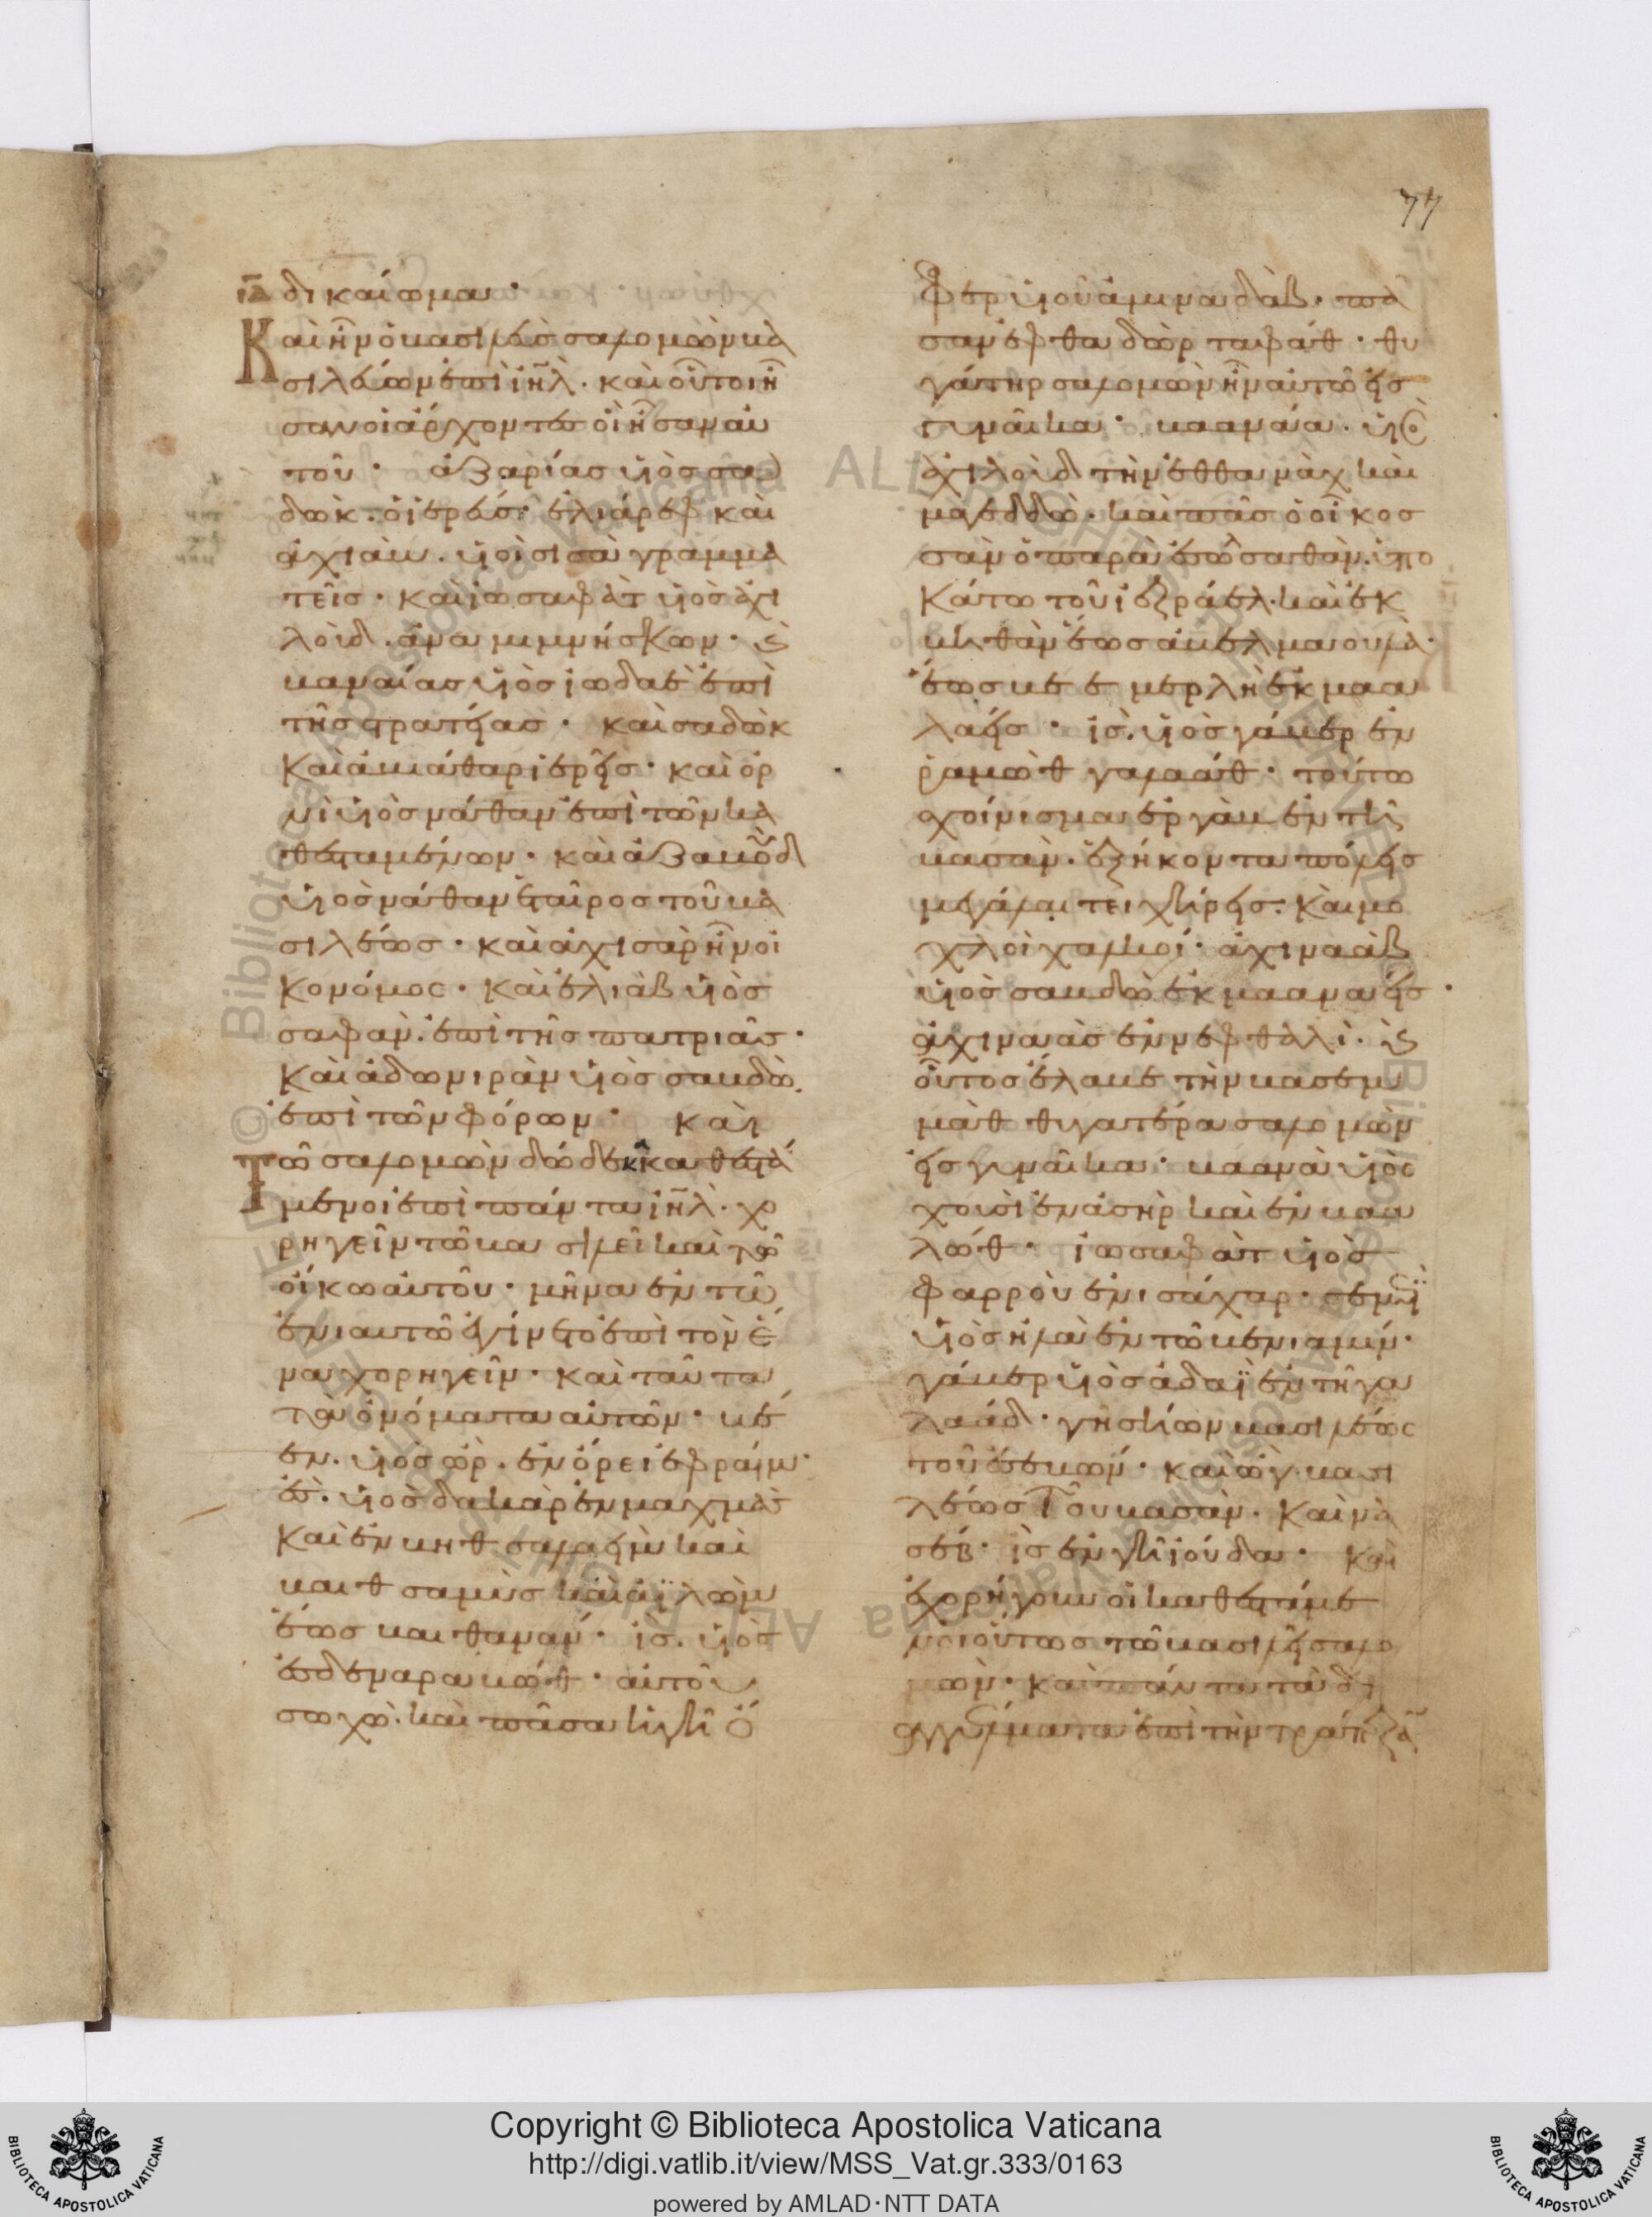 77
ιδ δικαίωμα·
Καὶ ἦν ὁ βασιλεὺς σαλομὼν βα
σιλεύων ἐπὶ ἰη̅λ. καὶ οὗτοι ἦ
σαν οἱ ἄρχοντες οἳ ἦσαν αὐ
τοῦ· ἀζαρίας υἱὸς σα
δωκ. ὁ ἱερεύς· ἐλιάρεφ καὶ
ἀχιὰμ. υἱοὶ σισὰ γραμμα
τεῖς· καὶ ἰωσαφὰτ υἱὸς ἀχι
λοὺδ. ἀναμιμνήσκων· ϗ
βαναίας υἱὸς ἰωδαὲ ἐπὶ
τῆς στρατείας· καὶ σαδὼκ
καὶ ἀβιάθαρ ἱερεῖς· καὶ ὀρ
νὶ υἱὸς νάθαν ἐπὶ τῶν κα
θεσταμένων· καὶ ἀζαβοὺδ
υἱὸς νάθαν ἑταῖρος τοῦ βα
σιλέως· καὶ ἀχισὰρ ἦν οἰ
κονόμος· καὶ ἐλιὰβ υἱὸς
σαφὰν. ἐπὶ τῆς πατριᾶς·
καὶ ἀδωνιρὰμ υἱὸς σαβδὼ.
ἐπὶ τῶν φόρων· καὶ
Τῶ σαλομὼν δώδεκα καθεστα
μένοι ἐπὶ πάντα ἰη̅λ. χο
ρηγεῖν τῶ βασιλεῖ καὶ τῶ
οἴκω αὐτοῦ· μῆνα ἐν τῶ
ἐνιαυτῶ ἐγίνετο ἐπὶ τὸν ἕ
να χορηγεῖν· καὶ ταῦτα
τὰ ὀνόματα αὐτῶν· βέ
εν. υἱὸς ὢρ. ἐν ὄρει ἐφραίμ·
υἱὸς δακὰρ ἐν μαχμὰς
καὶ ἐν βηθσαλαεὶμ καὶ
βαιθσαμὺς καὶ αἰλὼμ
ἕως βαιθαναν· ἰς. υἱὸς
ἐσδεναραβώθ· αὐτοῦ
σωχὼ. καὶ πᾶσα ἡ γῆ ὄ
φερ υἱοῦ ἀμιναδὰβ. πα
σαν ἐφθαδὼρ ταφάθ· θυ
γάτηρ σαλομὼν ἦν αὐτῶ εἰς
γυναῖκα· βααναά. υἱὸς
ἀχιλοὺδ τὴν ἐθθανὰχ καὶ
μαεδδὼ. καὶ πᾶς ὁ οἶκος
σὰν ὁ παρὰ ἐσσασθὰν. ὑπο
κάτω τοῦ ἰεζράελ. καὶ ἐκ
βηθὰν ἕως ἀβελμαουλὰ·
ἕως βεεμερλὴ ἐκμαα
λαείς· ἰς. υἱὸς γάβερ ἐν
ῥαμὼθ γαλαάθ· τούτω
σχοίνισμα ἐργὰβ ἐν τῆ
βασὰν. ἑξήκοντα πόλεις
μεγάλαι τειχήρεις. καὶ μο
χλοὶ χαλκοῖ· ἀχιναὰβ
υἱὸς σαβδὼ ἐκμααναείς·
ἀχιναὰς ἐν νεφθαλὶ. ϗ
οὗτος ἔλαβε τὴν βασεμ
μὰθ θυγατέρα σαλομὼν
εἰς γυναῖκα· βαανὰ υἱὸς
χουσὶ ἐν ἀσὴρ καὶ ἐν βαα
λώθ· ἰωσαφὰτ υἱὸς
φαρροὺ ἐν ισάχαρ· σεμεῒ
υἱὸς ἠλὰ ἐν τῶ βενιαμίν.
γάβερ υἱὸς ἀδαῒ ἐν τῆ γα
λαάδ· γῆ σηὼν βασιλέως
τοῦ ἐσεβών· καὶ ὢγ βασι
λέως τοῦ βασάν. καὶ να
σέβ· ἰς ἐν γῆ ἰούδα· Καὶ
ἐχορήγουν οἱ καθεσταμέ
νοι οὕτως τῶ βασιλεῖ σαλο
μὼν· καὶ πάντα τὰ δι
αγγέλματα ἐπὶ τὴν τράπεζα̅
Copyright © Biblioteca Apostolica Vaticana
http://digi.vatlib.it/view/MSS_Vat.gr.333/0163
powered by AMLAD·NTT DATA
BIBLIOTECA APOSTOLICA VATICANA
BIBLIOTECA APOSTOLICA VATICANA